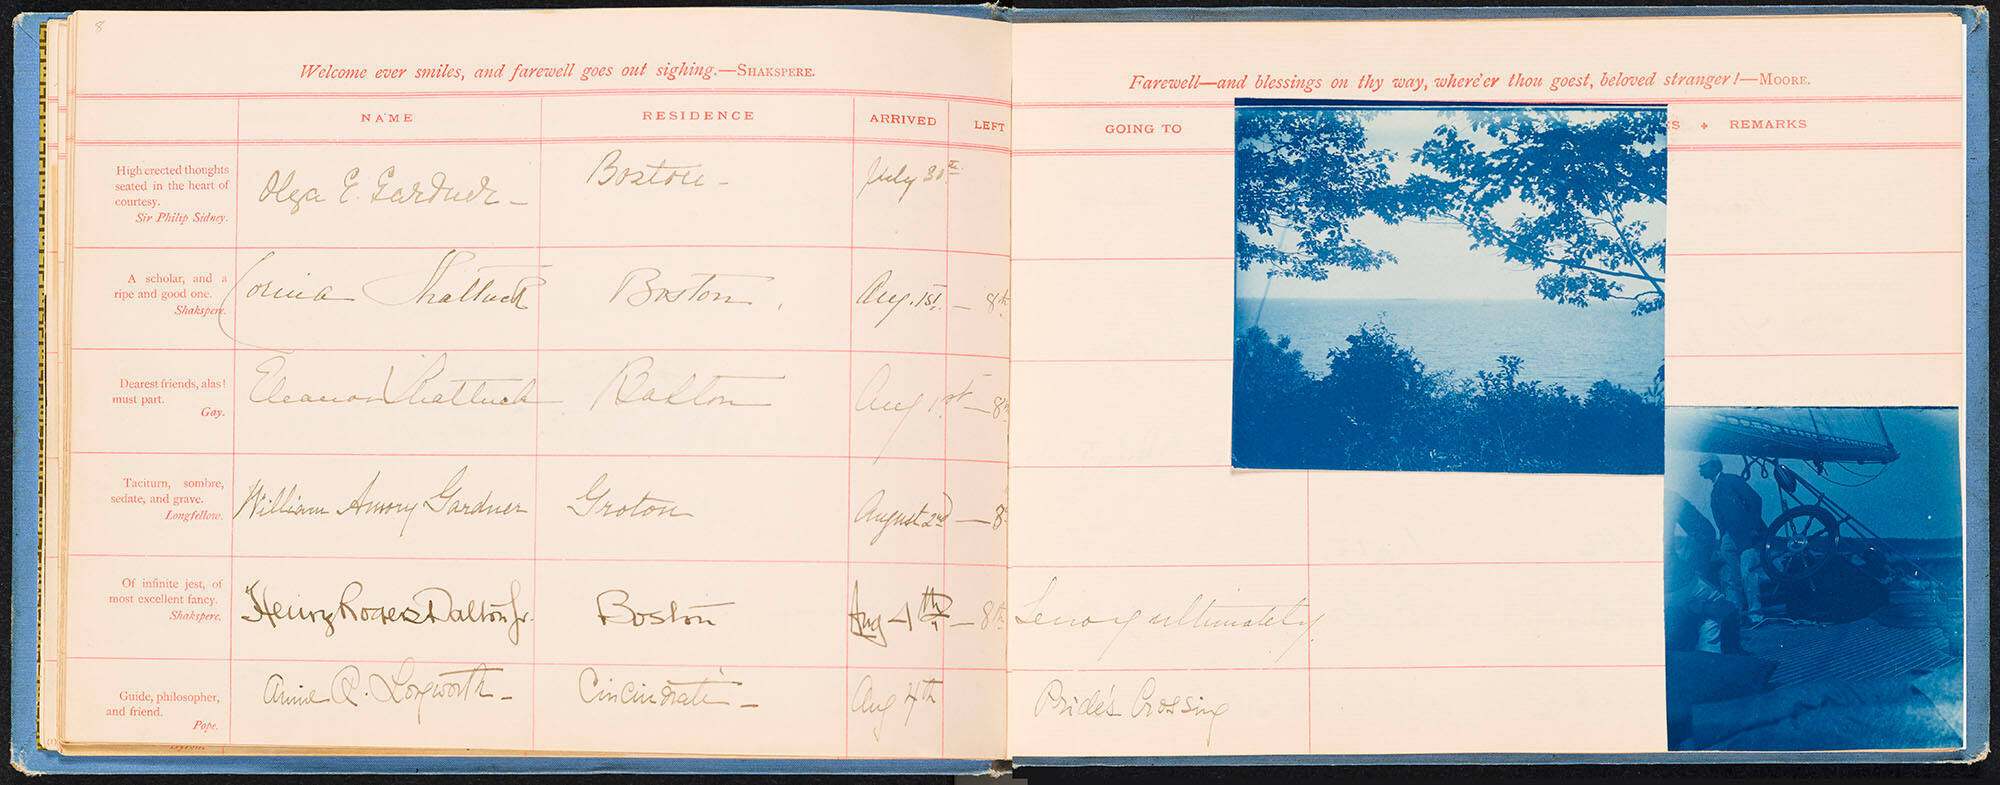 8
Welcome ever smiles, and farewell goes out sighing.—SHAKSPERE.
Farewell—and blessings on thy way, where'er thou goest, beloved stranger!—MOORE.
NAME RESIDENCE ARRIVED LEFT
GOING TO S + REMARKS
High erected thoughts
seated in the heart of
courtesy.
Sir Philip Sidney.
Olga E. Gardner – Boston – July 30th
A scholar, and a
ripe and good one.
Shakspere.
Corina Shattuck Boston, Aug. 1st. – 8th
Dearest friends, alas!
must part.
Gay.
Eleanor Shattuck Boston Aug 1st – 8th
Taciturn, sombre,
sedate, and grave.
Longfellow.
William Amory Gardner Groton August 2nd – 8th
Of infinite jest, of
most excellent fancy.
Shakspere.
Henry Rogers Dalton Jr. Boston Aug 4th – 8th Lenox ultimately.
Guide, philosopher,
and friend.
Pope.
Annie R. Longworth – Cincinnati – Aug 4th Pride's Crossing
Byron.